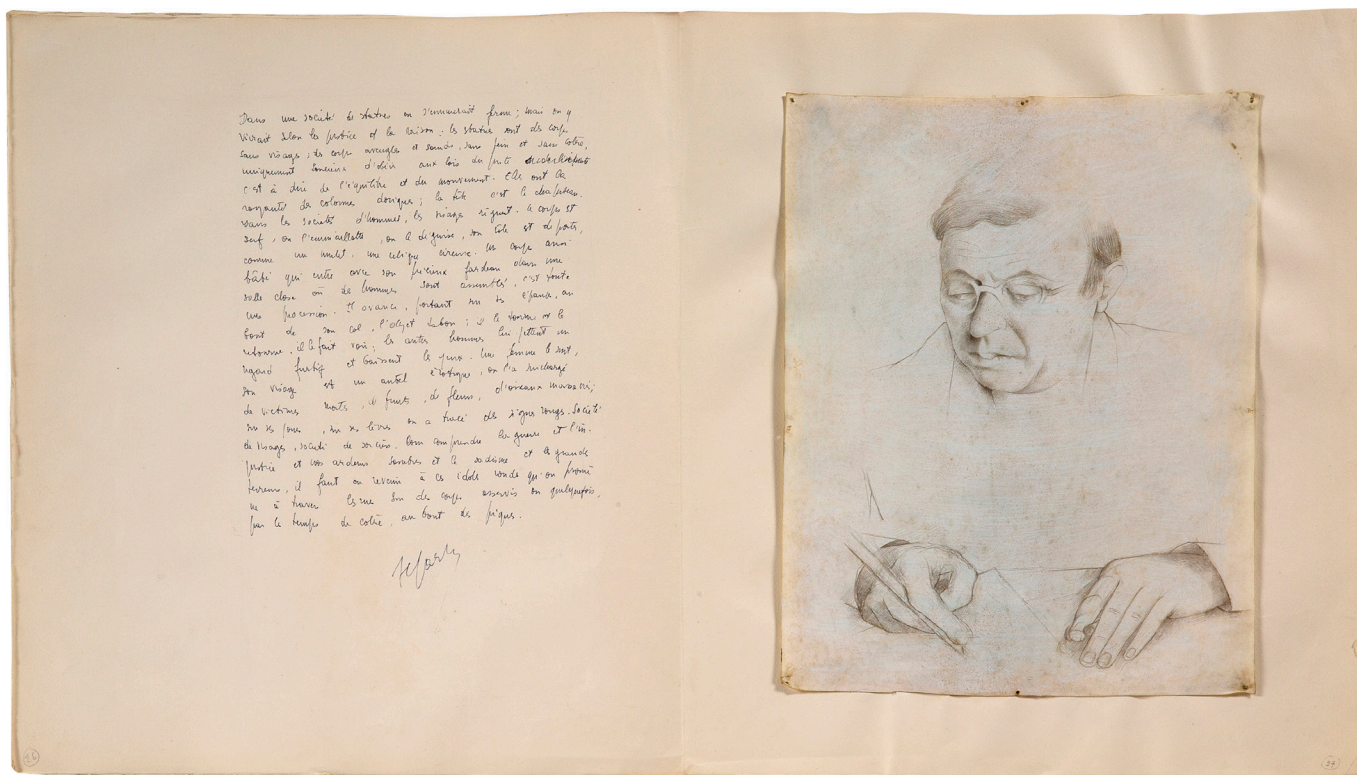 Dans une société de statues on s'ennuierait ferme ; mais on y
vivrait selon la justice et la raison : les statues sont des corps
sans visages ; des corps aveugles et sourds, sans peur et sans colère,
uniquement soucieux d'obéir aux lois du juste
c'est à dire de l'équilibre et du mouvement. Elles ont la
royauté des colonnes doriques ; la tête c'est le chapiteau.
dans les sociétés d'hommes, les visages règnent. le corps est
serf, on l'emmaillotte, on le déguise, son rôle est de porter,
comme un mulet, une relique cireuse. Un corps ainsi
bâté qui entre avec son précieux fardeau dans une
salle close où des hommes sont assemblés, c'est toute
une procession. Il avance, portant sur ses épaules, au
bout de son col, l'objet tabou ; il le tourne et le
retourne, il le fait voir ; les autres hommes lui jettent un
regard furtif et baissent les yeux. Une femme le suit,
son visage est un autel érotique, on l'a surchargé
de victimes mortes, de fruits, de fleurs, d'oiseaux massacrés ;
sur ses joues, sur ses lèvres on a tracé des signes rouges. Société
de visages, société de sorciers. Pour comprendre la guerre et l'in-
justice et nos ardeurs sombres et le sadisme et les grandes
terreurs, il faut en revenir à ces idoles rondes qu'on promè
ne à travers les rues sur des corps asservis ou quelquefois,
par le temps de colère, au bout des piques.
JP Sartre
26
27